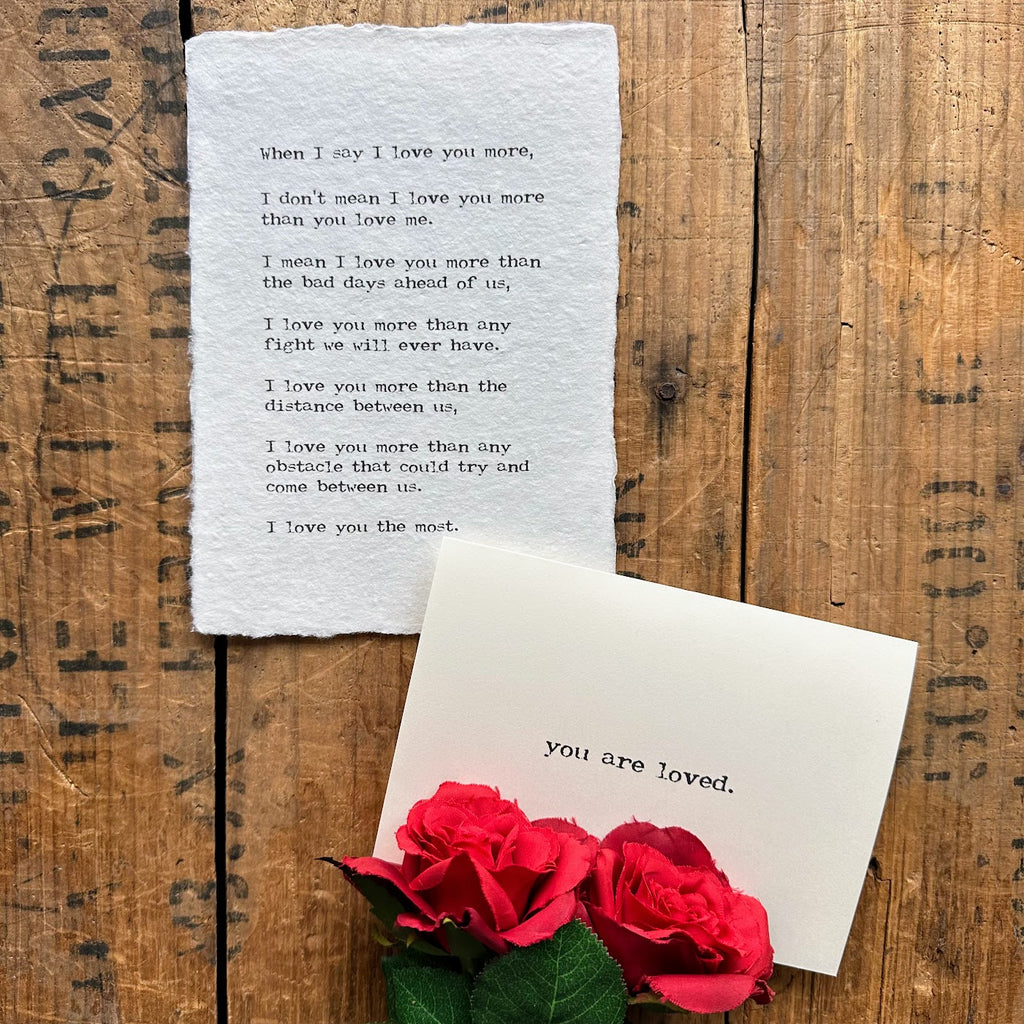 When I say I love you more,
I don't mean I love you more
than you love me.
I mean I love you more than
the bad days ahead of us,
I love you more than any
fight we will ever have.
I love you more than the
distance between us,
I love you more than any
obstacle that could try and
come between us.
I love you the most.
you are loved.